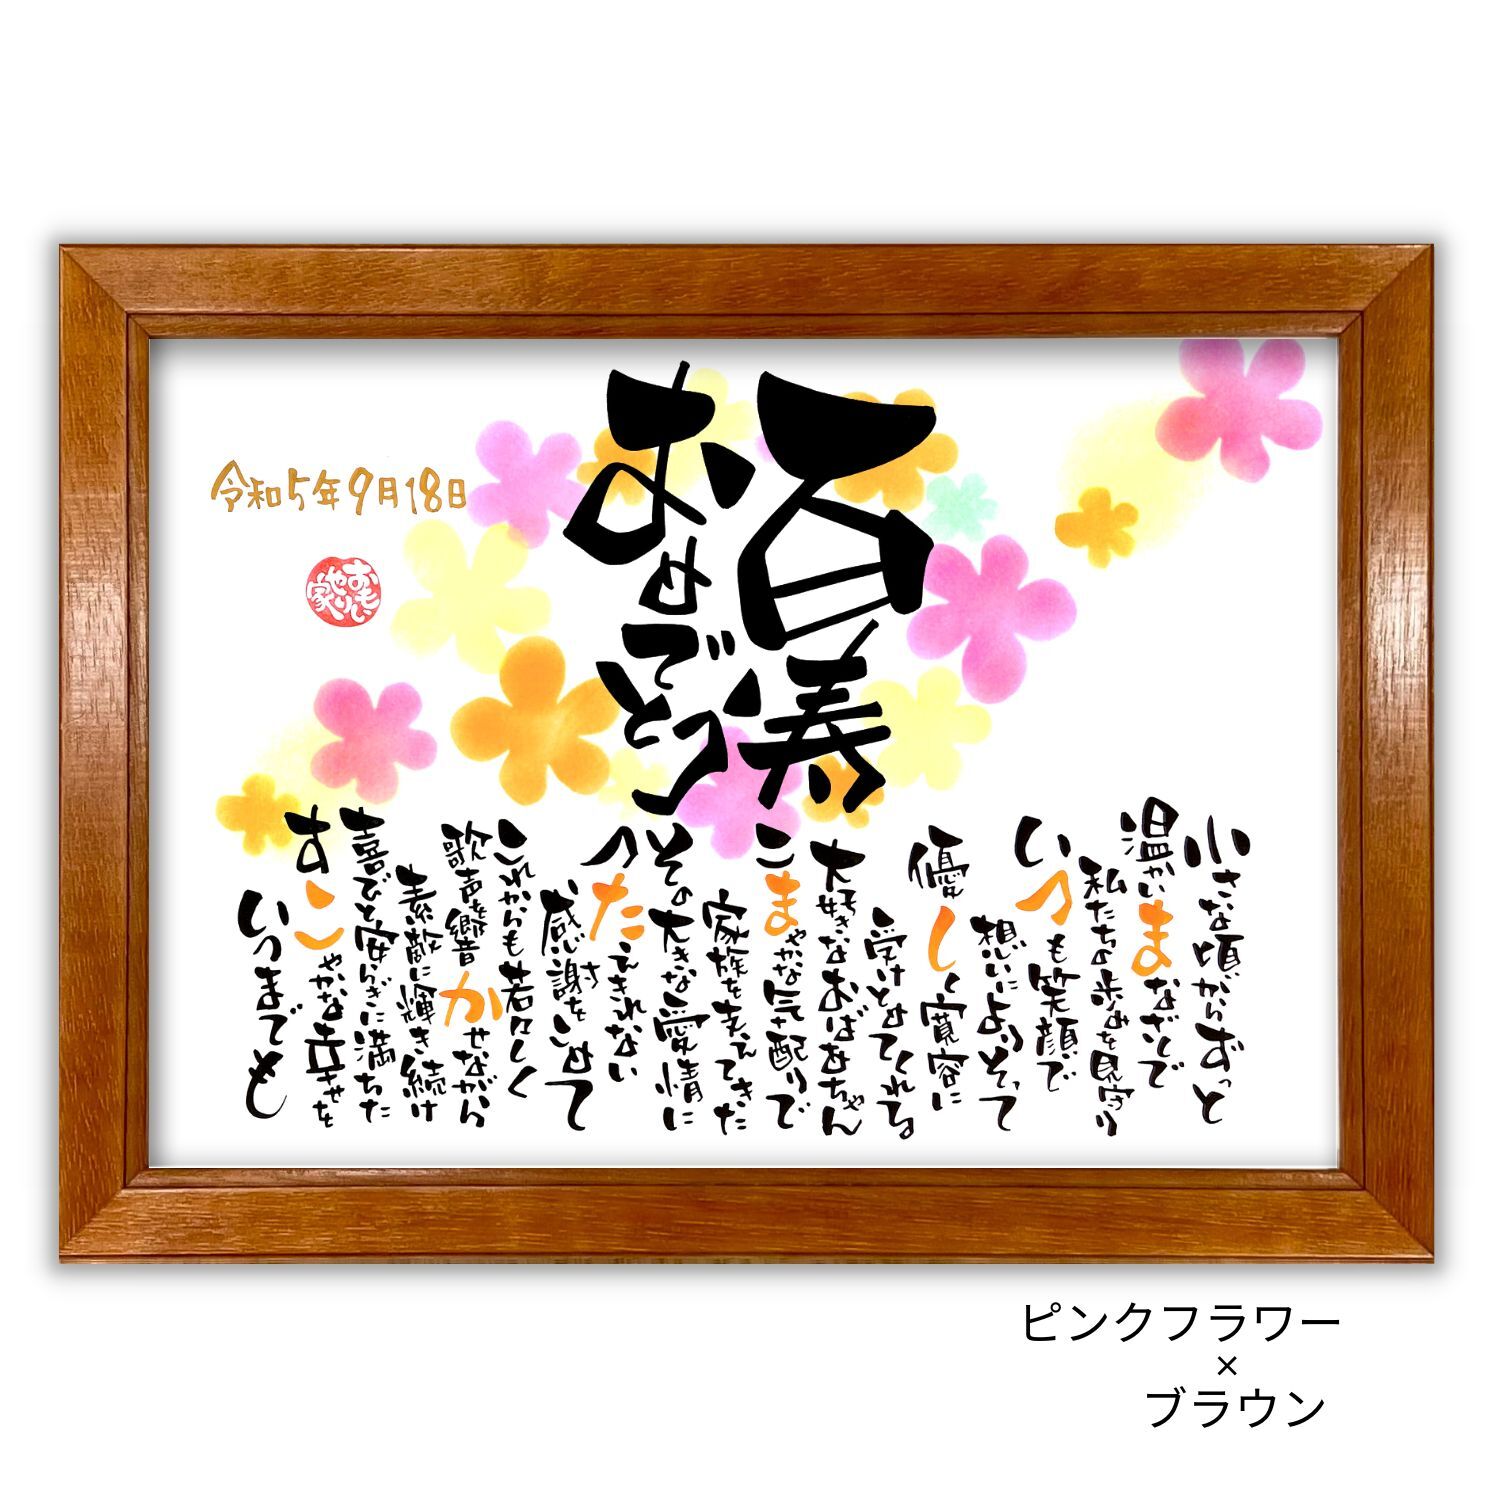 百寿
おめでとう
令和5年9月18日
おもい
やり
家
小さな頃からずっと
温かいまなざしで
私たちの歩みを見守り
いつも笑顔で
想いによりそって
優しく寛容に
受けとめてくれる
大好きなおばあちゃん
こまやかな気配りで
家族を支えてきた
その大きな愛情に
つたえきれない
感謝をこめて
これからも若々しく
歌声を響かせながら
素敵に輝き続け
喜びと安らぎに満ちた
すこやかな幸せを
いつまでも
ピンクフラワー
×
ブラウン